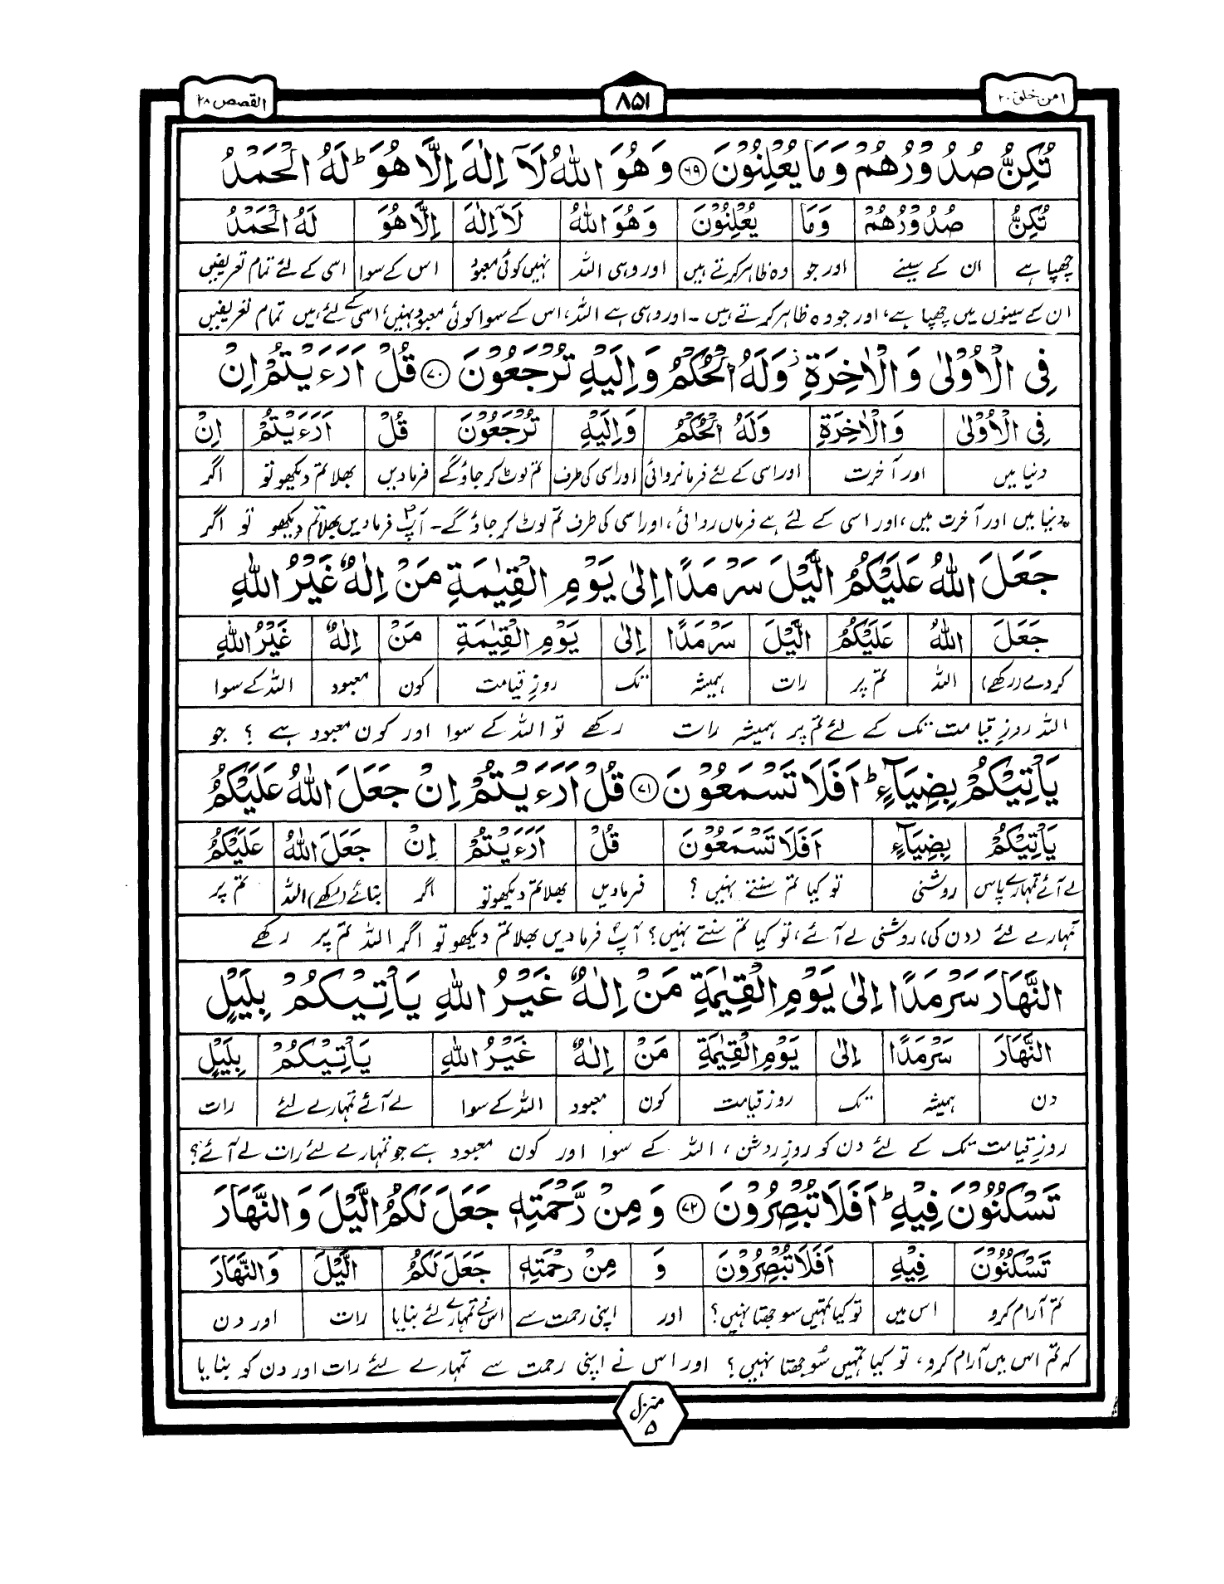 امن خلق ۲۰
۸۵۱
القصص ۲۸
تُكِنُّ صُدُوْرُهُمْ وَمَا يُعْلِنُوْنَ ﴿۶۹﴾ وَهُوَ اللّٰهُ لَاۤ اِلٰهَ اِلَّا هُوَ ؕ لَهُ الْحَمْدُ
تُكِنُّ صُدُوْرُهُمْ وَمَا يُعْلِنُوْنَ وَهُوَ اللّٰهُ لَاۤ اِلٰهَ اِلَّا هُوَ لَهُ الْحَمْدُ
چھپا ہے ان کے سینے اور جو وہ ظاہر کرتے ہیں اور وہی اللہ نہیں کوئی معبود اس کے سوا اسی کے لئے تمام تعریفیں
ان کے سینوں میں چھپا ہے، اور جو وہ ظاہر کرتے ہیں ۔ اور وہی ہے اللہ، اس کے سوا کوئی معبود نہیں، اسی کے لئے ہیں تمام تعریفیں
فِی الْاُوْلٰى وَالْاٰخِرَةِ ۫ وَلَهُ الْحُكْمُ وَاِلَيْهِ تُرْجَعُوْنَ ﴿۷۰﴾ قُلْ اَرَءَيْتُمْ اِنْ
فِی الْاُوْلٰى وَالْاٰخِرَةِ وَلَهُ الْحُكْمُ وَاِلَيْهِ تُرْجَعُوْنَ قُلْ اَرَءَيْتُمْ اِنْ
دنیا میں اور آخرت اور اسی کے لئے فرمانروائی اور اسی کی طرف تم لوٹ کر جاؤ گے فرمادیں بھلا تم دیکھو تو اگر
دنیا میں اور آخرت میں، اور اسی کے لئے ہے فرماں روائی، اور اسی کی طرف تم لوٹ کر جاؤ گے۔ آپؐ فرمادیں بھلا تم دیکھو تو اگر
جَعَلَ اللّٰهُ عَلَيْكُمُ الَّيْلَ سَرْمَدًا اِلٰى يَوْمِ الْقِيٰمَةِ مَنْ اِلٰهٌ غَيْرُ اللّٰهِ
جَعَلَ اللّٰهُ عَلَيْكُمُ الَّيْلَ سَرْمَدًا اِلٰى يَوْمِ الْقِيٰمَةِ مَنْ اِلٰهٌ غَيْرُ اللّٰهِ
کر دے (رکھے) اللہ تم پر رات ہمیشہ تک روزِ قیامت کون معبود اللہ کے سوا
اللہ روزِ قیامت تک کے لئے تم پر ہمیشہ رات رکھے تو اللہ کے سوا اور کون معبود ہے ؟ جو
يَاْتِيْكُمْ بِضِيَآءٍ ؕ اَفَلَا تَسْمَعُوْنَ ﴿۷۱﴾ قُلْ اَرَءَيْتُمْ اِنْ جَعَلَ اللّٰهُ عَلَيْكُمُ
يَاْتِيْكُمْ بِضِيَآءٍ اَفَلَا تَسْمَعُوْنَ قُلْ اَرَءَيْتُمْ اِنْ جَعَلَ اللّٰهُ عَلَيْكُمُ
لے آئے تمہارے پاس روشنی تو کیا تم سنتے نہیں ؟ فرمادیں بھلا تم دیکھو تو اگر بنائے (رکھے) اللہ تم پر
تمہارے لئے (دن کی) روشنی لے آئے، تو کیا تم سنتے نہیں؟ آپؐ فرمادیں بھلا تم دیکھو تو اگر اللہ تم پر رکھے
النَّهَارَ سَرْمَدًا اِلٰى يَوْمِ الْقِيٰمَةِ مَنْ اِلٰهٌ غَيْرُ اللّٰهِ يَاْتِيْكُمْ بِلَيْلٍ
النَّهَارَ سَرْمَدًا اِلٰى يَوْمِ الْقِيٰمَةِ مَنْ اِلٰهٌ غَيْرُ اللّٰهِ يَاْتِيْكُمْ بِلَيْلٍ
دن ہمیشہ تک روزِ قیامت کون معبود اللہ کے سوا لے آئے تمہارے لئے رات
روزِ قیامت تک کے لئے دن کو روزِ روشن، اللہ کے سوا اور کون معبود ہے جو تمہارے لئے رات لے آئے؟
تَسْكُنُوْنَ فِيْهِ ؕ اَفَلَا تُبْصِرُوْنَ ﴿۷۲﴾ وَمِنْ رَّحْمَتِهٖ جَعَلَ لَكُمُ الَّيْلَ وَالنَّهَارَ
تَسْكُنُوْنَ فِيْهِ اَفَلَا تُبْصِرُوْنَ وَ مِنْ رَّحْمَتِهٖ جَعَلَ لَكُمُ الَّيْلَ وَالنَّهَارَ
تم آرام کرو اس میں تو کیا تمہیں سوجھتا نہیں؟ اور اپنی رحمت سے اس نے تمہارے لئے بنایا رات اور دن
کہ تم اس میں آرام کرو، تو کیا تمہیں سُوجھتا نہیں؟ اور اس نے اپنی رحمت سے تمہارے لئے رات اور دن کو بنایا
منزل
۵